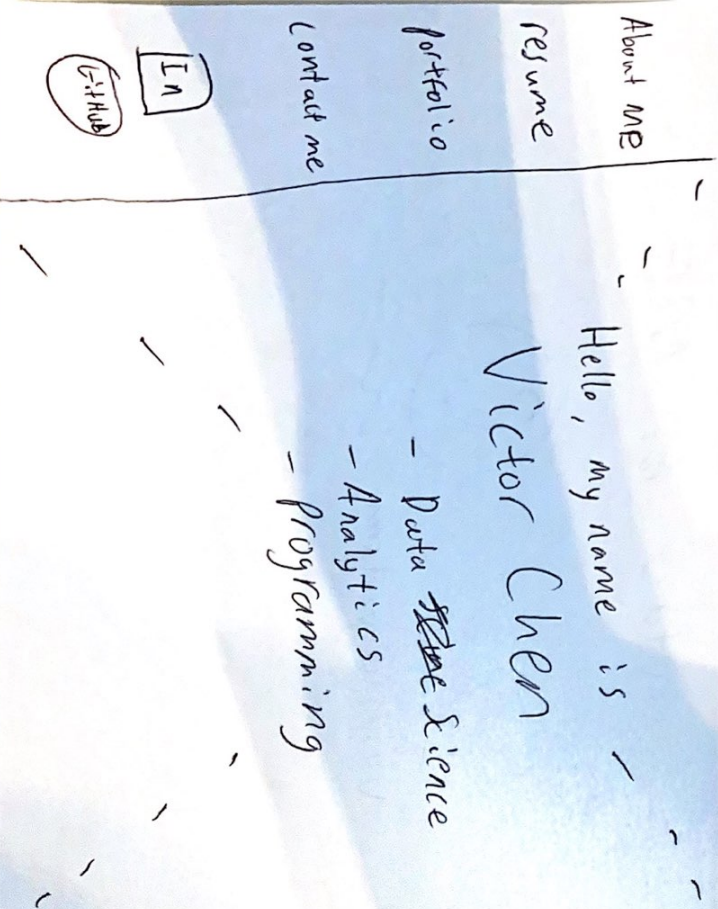 About me
resume
portfolio
contact me
In
GitHub
Hello, my name is
Victor Chen
- Data Science
- Analytics
- Programming